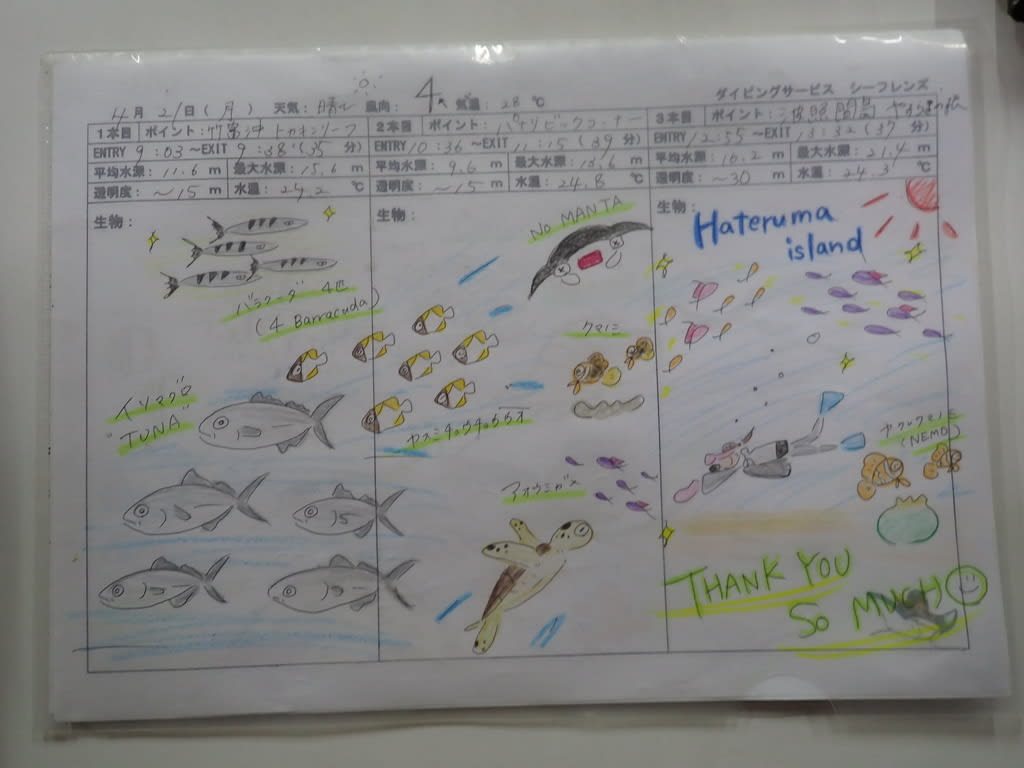 ダイビングサービス シーフレンズ
4月 21日(月) 天気: 晴レ 風向: 気温: 28 ℃
1本目 ポイント: 竹富沖 トカキンリーフ
ENTRY 9:03 ~EXIT 9:38 (35 分)
平均水深: 11.6 m 最大水深: 15.6 m
透明度: ~15 m 水温: 24.2 ℃
2本目 ポイント:
ENTRY 10:36 ~EXIT 11:15 (39 分)
平均水深: 9.6 m 最大水深: 13.6 m
透明度: ~15 m 水温: 24.8 ℃
3本目 ポイント:
ENTRY 12:55 ~EXIT 13:32 (37 分)
平均水深: 10.2 m 最大水深: 21.4 m
透明度: ~30 m 水温: 24.3 ℃
生物:
バラクーダ 4匹
(4 Barracuda)
イソマグロ
"TUNA"
生物:
NO MANTA
クマノミ
アオウミガメ
生物:
Hateruma
island
(NEMO)
THANK YOU
SO MUCH